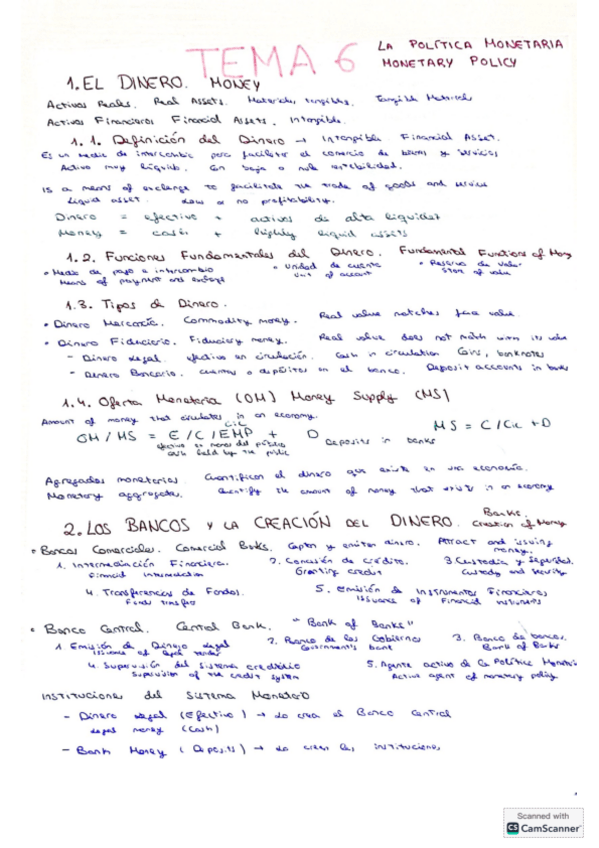 TEMA 6
LA POLÍTICA MONETARIA
MONETARY POLICY
1. EL DINERO. MONEY
Activos Reales. Real Assets. Materiales, tangibles. Tangible Material
Activos Financieros Financial Assets. Intangible.
1.1. Definición del Dinero → Intangible Financial Asset.
Es un medio de intercambio para facilitar el comercio de bienes y servicios
Activo muy líquido. Con baja o nula rentabilidad.
Is a means of exchange to facilitate the trade of goods and service
Liquid asset. Low or no profitability.
Dinero = efectivo + activos de alta liquidez
Money = cash + highly liquid assets
1.2. Funciones Fundamentales del Dinero. Fundamental Functions of Money
• Medio de pago e intercambio • Unidad de cuenta • Reserva de valor
Means of payment and exchange Unit of account Store of value
1.3. Tipos de Dinero.
• Dinero Mercancía. Commodity money. Real value matches face value.
• Dinero Fiduciario. Fiduciary money. Real value does not match with its value
- Dinero legal. efectivo en circulación. Cash in circulation Coins, banknotes
- Dinero Bancario. cuentas o depósitos en el banco. Deposit accounts in banks
1.4. Oferta Monetaria (OM) Money Supply (MS)
Amount of money that circulates in an economy.
OM / MS = E / C / EMP + D MS = C / Cic + D
efectivo en manos del público Deposits in banks
cash held by the public
Agregados monetarios. Cuantifican el dinero que existe en una economía.
Monetary aggregates. Quantify the amount of money that exists in an economy
2. LOS BANCOS y LA CREACIÓN DEL DINERO. Banks.
Creation of Money
• Bancos Comerciales. Comercial Banks. Captan y emiten dinero. Attract and issuing money.
1. Intermediación Financiera. 2. Concesión de crédito. 3. Custodia y Seguridad.
Financial intermediation Granting credit Custody and security
4. Transferencias de Fondos. 5. Emisión de Instrumentos Financieros
Funds transfers Issuance of Financial instruments
• Banco Central. Central Bank. "Bank of Banks"
1. Emisión de Dinero legal 2. Banco de los Gobiernos 3. Banco de bancos.
Issuance of legal tender Government's bank Bank of Banks
4. Supervisión del sistema crediticio 5. Agente activo de la Política Monetaria
Supervision of the credit system Active agent of monetary policy
Instituciones del Sistema Monetario
- Dinero legal (Efectivo) → Lo crea el Banco Central
Legal money (Cash)
- Bank Money (Deposits) → Lo crean las instituciones
Scanned with
CS CamScanner